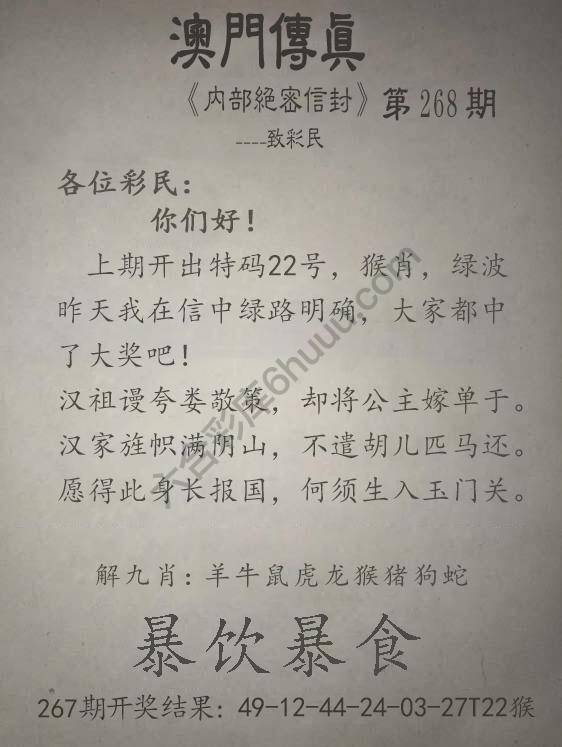 澳門傳眞
《内部絕密信封》第268期
----致彩民
各位彩民：
你们好！
上期开出特码22号，猴肖，绿波
昨天我在信中绿路明确，大家都中
了大奖吧！
汉祖谩夸娄敬策，却将公主嫁单于。
汉家旌帜满阴山，不遣胡儿匹马还。
愿得此身长报国，何须生入玉门关。
解九肖：羊牛鼠虎龙猴猪狗蛇
暴饮暴食
267期开奖结果：49-12-44-24-03-27T22猴
六合彩库6huuu.com